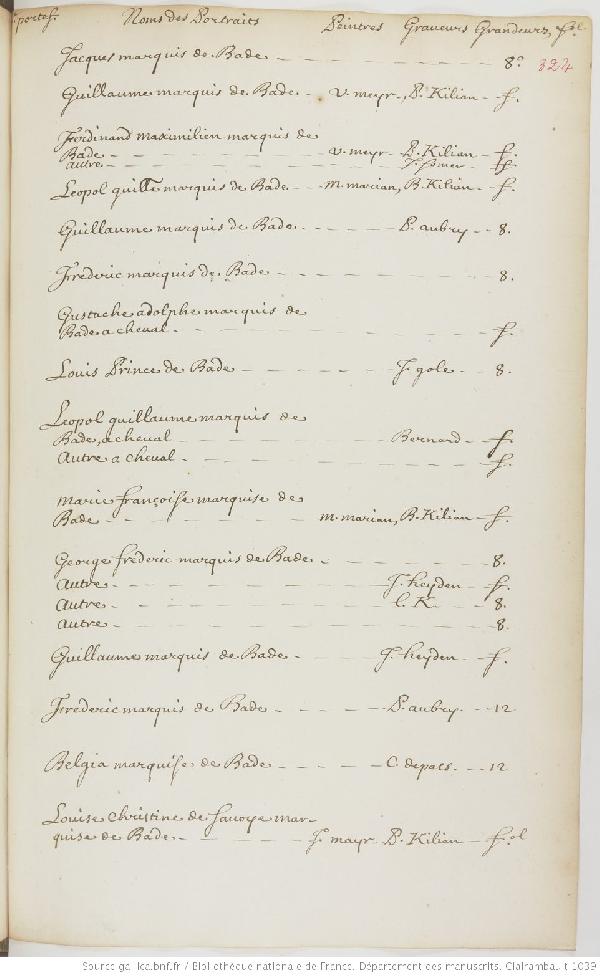 portef. Noms des Portraits Peintres Graveurs Grandeurs, fol
Jacques marquis de Bade 8° 324
Guillaume marquis de Bade v. meyr, P. Kilian f.
Ferdinand maximilien marquis de
Bade v. meyr P. Kilian f.
autre f.
Leopol guille marquis de Bade m. marian, B. Kilian f.
Guillaume marquis de Bade P. aubry 8.
Frederic marquis de Bade 8.
Gustache adolphe marquis de
Bade a cheval. f.
Louis Prince de Bade J. gole 8.
Leopol guillaume marquis de
Bade, a cheval Bernard f.
Autre a cheval f.
marie françoise marquise de
Bade m. marian, B. Kilian f.
George frederic marquis de Bade 8.
Autre J. heyden f.
Autre C. K. 8.
Autre 8.
Guillaume marquis de Bade J. heyden f.
Frederic marquis de Bade P. aubry 12
Belgia marquise de Bade C. de pas 12
Louise Christine de savoye mar-
quise de Bade J. mayr P. Kilian fol
Source gallica.bnf.fr / Bibliothèque nationale de France. Département des manuscrits. Clairambault 1039